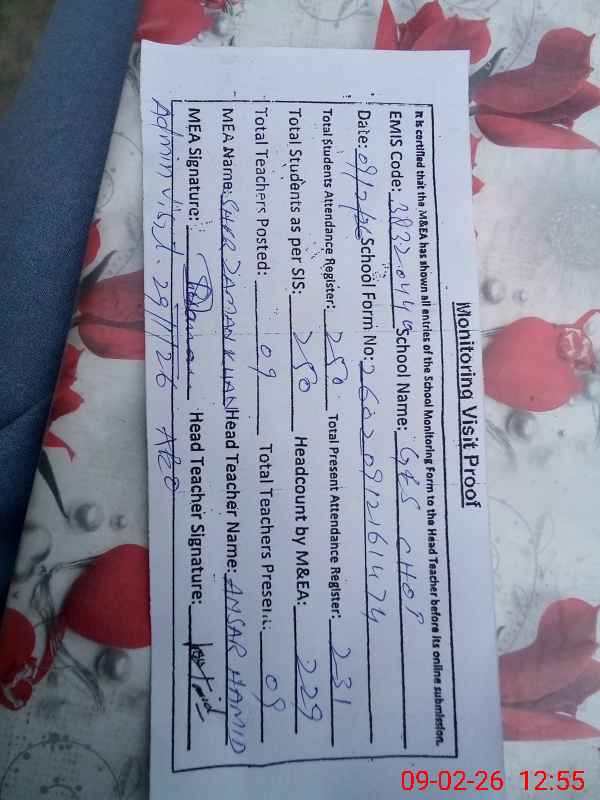 Monitoring Visit Proof
It is certified that the M&EA has shown all entries of the School Monitoring Form to the Head Teacher before its online submission.
EMIS Code: 38320449 School Name: GES CHOP
Date: 09/2/26 School Form No: 26020912161474
Total Students Attendance Register: 250 Total Present Attendance Register: 231
Total Students as per SIS: 250 Headcount by M&EA: 229
Total Teachers Posted: 09 Total Teachers Present: 09
MEA Name: SHER ZAMAN KHAN Head Teacher Name: ANSAR HAMID
MEA Signature: Head Teacher Signature:
Admin visit. 29/1/26
09-02-26 12:55